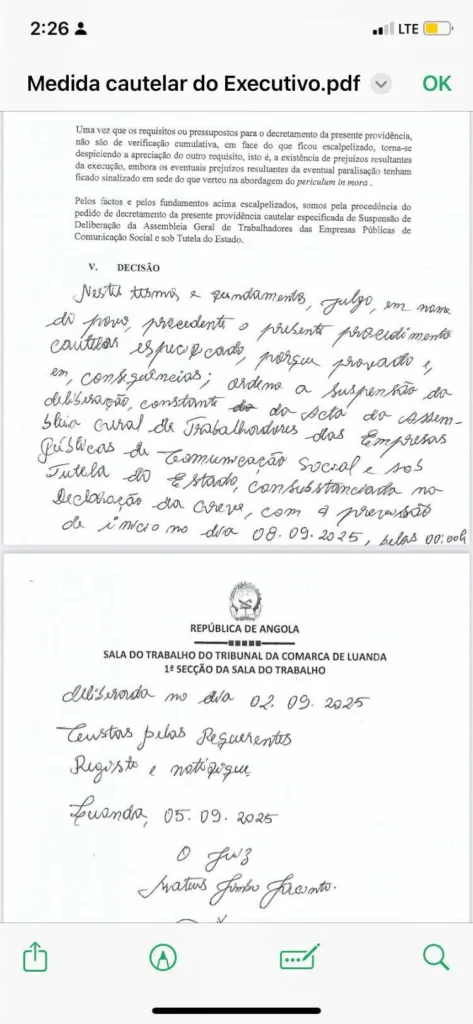 2:26
LTE
Medida cautelar do Executivo.pdf
OK
Uma vez que os requisitos ou pressupostos para o decretamento da presente providência,
não são de verificação cumulativa, em face do que ficou escalpelizado, torna-se
despiciendo a apreciação do outro requisito, isto é, a existência de prejuízos resultantes
da execução, embora os eventuais prejuízos resultantes da eventual paralisação tenham
ficado sinalizado em sede do que verteu na abordagem do periculum in mora .
Pelos factos e pelos fundamentos acima escalpelizados, somos pela procedência do
pedido de decretamento da presente providência cautelar especificada de Suspensão de
Deliberação da Assembleia Geral de Trabalhadores das Empresas Públicas de
Comunicação Social e sob Tutela do Estado.
V. DECISÃO
termos e fundamentos, julgo, em nome
do povo, procedente o presente procedimento
cautelar especificado, porque provado e,
em, consequências; ordeno a suspensão da
deliberação, constante da Acta da Assem-
bleia Geral de Trabalhadores das Empresas
Públicas de Comunicação Social e sob
Tutela do Estado, consubstanciada na
Declaração da Greve, com a previsão
de início no dia 08.09.2025, pelas 00:00h
REPÚBLICA DE ANGOLA
SALA DO TRABALHO DO TRIBUNAL DA COMARCA DE LUANDA
1ª SECÇÃO DA SALA DO TRABALHO
deliberada no dia 02.09.2025
Custas pelas Requerentes
Registe e notifique
Luanda, 05.09.2025
O Juiz